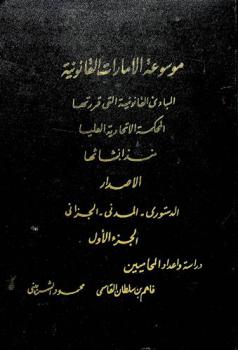 موسوعة الامارات القانونية
المبادئ القانونية التى قررتها
المحكمة الاتحادية العليا
منذ انشائها
الاصدار
الدستورى - المدنى - الجزائى
الجزء الأول
دراسة واعداد المحاميين
فاهم بن سلطان القاسمى محمود الشربينى